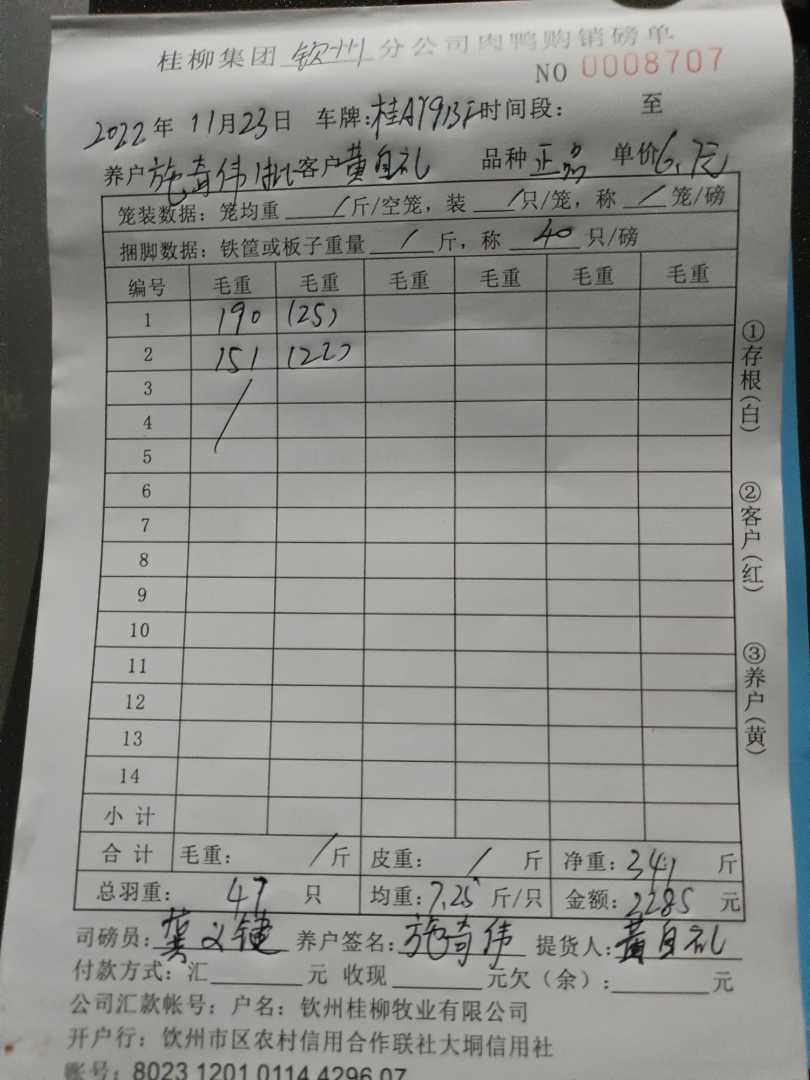 桂柳集团 钦州 分公司肉鸭购销磅单
NO 0008707
2022年 11月23日 车牌:桂AY913F时间段: 至
养户施奇伟 1批 客户黄自礼 品种 正品 单价6.7元
笼装数据: 笼均重 / 斤/空笼, 装 / 只/笼, 称 / 笼/磅
捆脚数据: 铁筐或板子重量 / 斤, 称 40 只/磅
编号 毛重 毛重 毛重 毛重 毛重 毛重
1 190 (25)
2 151 (22)
3 /
4
5
6
7
8
9
10
11
12
13
14
小 计
合 计 毛重: / 斤 皮重: / 斤 净重:341 斤
总羽重: 47 只 均重:7.25 斤/只 金额:2285 元
司磅员:龚义键 养户签名:施奇伟 提货人:黄自礼
付款方式: 汇 元 收现 元欠(余): 元
公司汇款帐号: 户名: 钦州桂柳牧业有限公司
开户行: 饮州市区农村信用合作联社大垌信用社
账号: 8023 1201 0114 4296 07
①存根(白)
②客户(红)
③养户(黄)